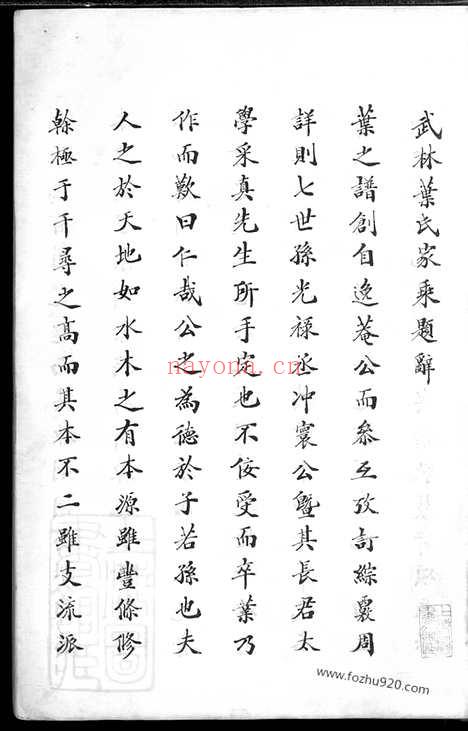 武林葉氏家乘題辭
葉之譜創自逸菴公而叅互攷訂綜覈周
詳則七世孫光祿丞冲寰公曁其長君太
學采真先生所手定也不佞受而卒業乃
作而歎曰仁哉公之為德於子若孫也夫
人之於天地如水木之有本源雖豐條修
榦極于千尋之高而其本不二雖支流派
nayona.cn
www.fozhu920.com